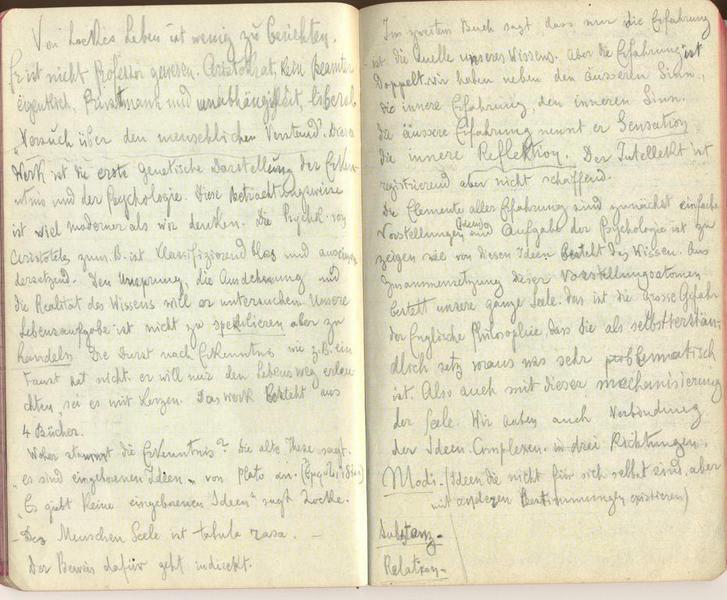 Von Lockes Leben ist wenig zu berichten.
Er ist nicht Professor gewesen. Aristokrat, kein Beamter
eigentlich, Privatmann und unabhängigkeit, liberal.
"Versuch über den menschlichen Verstand". Dieses
Werk ist die erste genetische Darstellung der Erken-
ntnis und der Psychologie. Diese betrachtungsweise
ist viel moderner als wir denken. Die Psychk. von
Aristoteles zum. B. ist klassifizierend blos und auseinan
dersetzend. Den Ursprung, die Ausdehnung und
die Realität des Wissens will er untersuchen. Unsere
Lebensaufgabe ist nicht zu spekulieren aber zu
handeln. Die Durst nach Erkenntnis wie z.B. ein
Faust hat nicht. er will nur den Lebensweg erleu
chten, sei es mit Kerzen. Das werk besteht aus
4 Bücher.
Woher stammt die Erkenntnis? Die alte These sagt.
"es sind eingeborenen Ideen" von Plato an.
"Es giebt keine eingeborenen Ideen" sagt Locke.
- Des Menschen Seele ist tabula rasa. -
Der Beweis dafür geht indirekt.
Im zweiten Buch sagt dass nur die Erfahrung
ist die Quelle unseres Wissens. Aber die Erfahrung ist
Doppelt. wir haben neben den äusseren Sinn,
die innere Erfahrung, den inneren Sinn.
die äussere Erfahrung nennt er Sensation
die innere Reflektion. Der Intellekt ist
registrierend aber nicht schaffend.
Die Elemente aller Erfahrung sind zunächst einfache
Vorstellungen (Ideas) und Aufgabe der Psychologie ist zu
zeigen wie von diesen Ideen besteht des Wissen. Aus
Zusammensetzung dieser Vorstellungsatomen
bestett unsere ganze Seele. das ist die grosse Gefahr
der Englische Philosophie, dass die als selbstverstän-
dlich setz voraus was sehr problematisch
ist. Also auch mit dieser mechanisierung
der Seele. Wir haben auch Verbindung
der Ideen Complexen in drei Richtungen.
Modi. (Ideen die nicht für sich selbst sind, aber
mit anderen Bestimmungen existieren)
Substanz.
Relation.